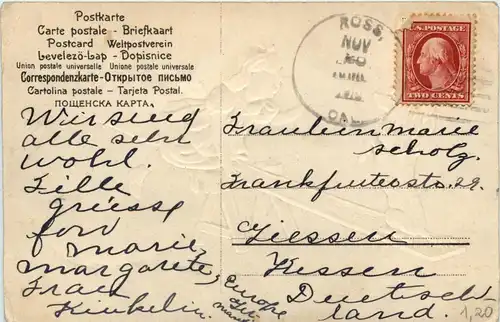 Postkarte
Carte postale - Briefkaart
Postcard Weltpostverein
Levelező-Lap - Dopisnice
Union postale universelle Unione postale universale
Correspondenzkarte - Открытое письмо
Cartolina postale - Tarjeta Postal.
ПОЩЕНСКА КАРТА
Wir sind
alle sehr
wohl.
Fille
griesse
fon
Marie,
Margarete,
Frau
ROSS,
NOV
CAL.
U.S. POSTAGE
TWO CENTS
Fraulein Marie
Scholz.
Frankfurterstr. 29.
Giessen
Hessen
Deutsch
land.
Europe
1,20